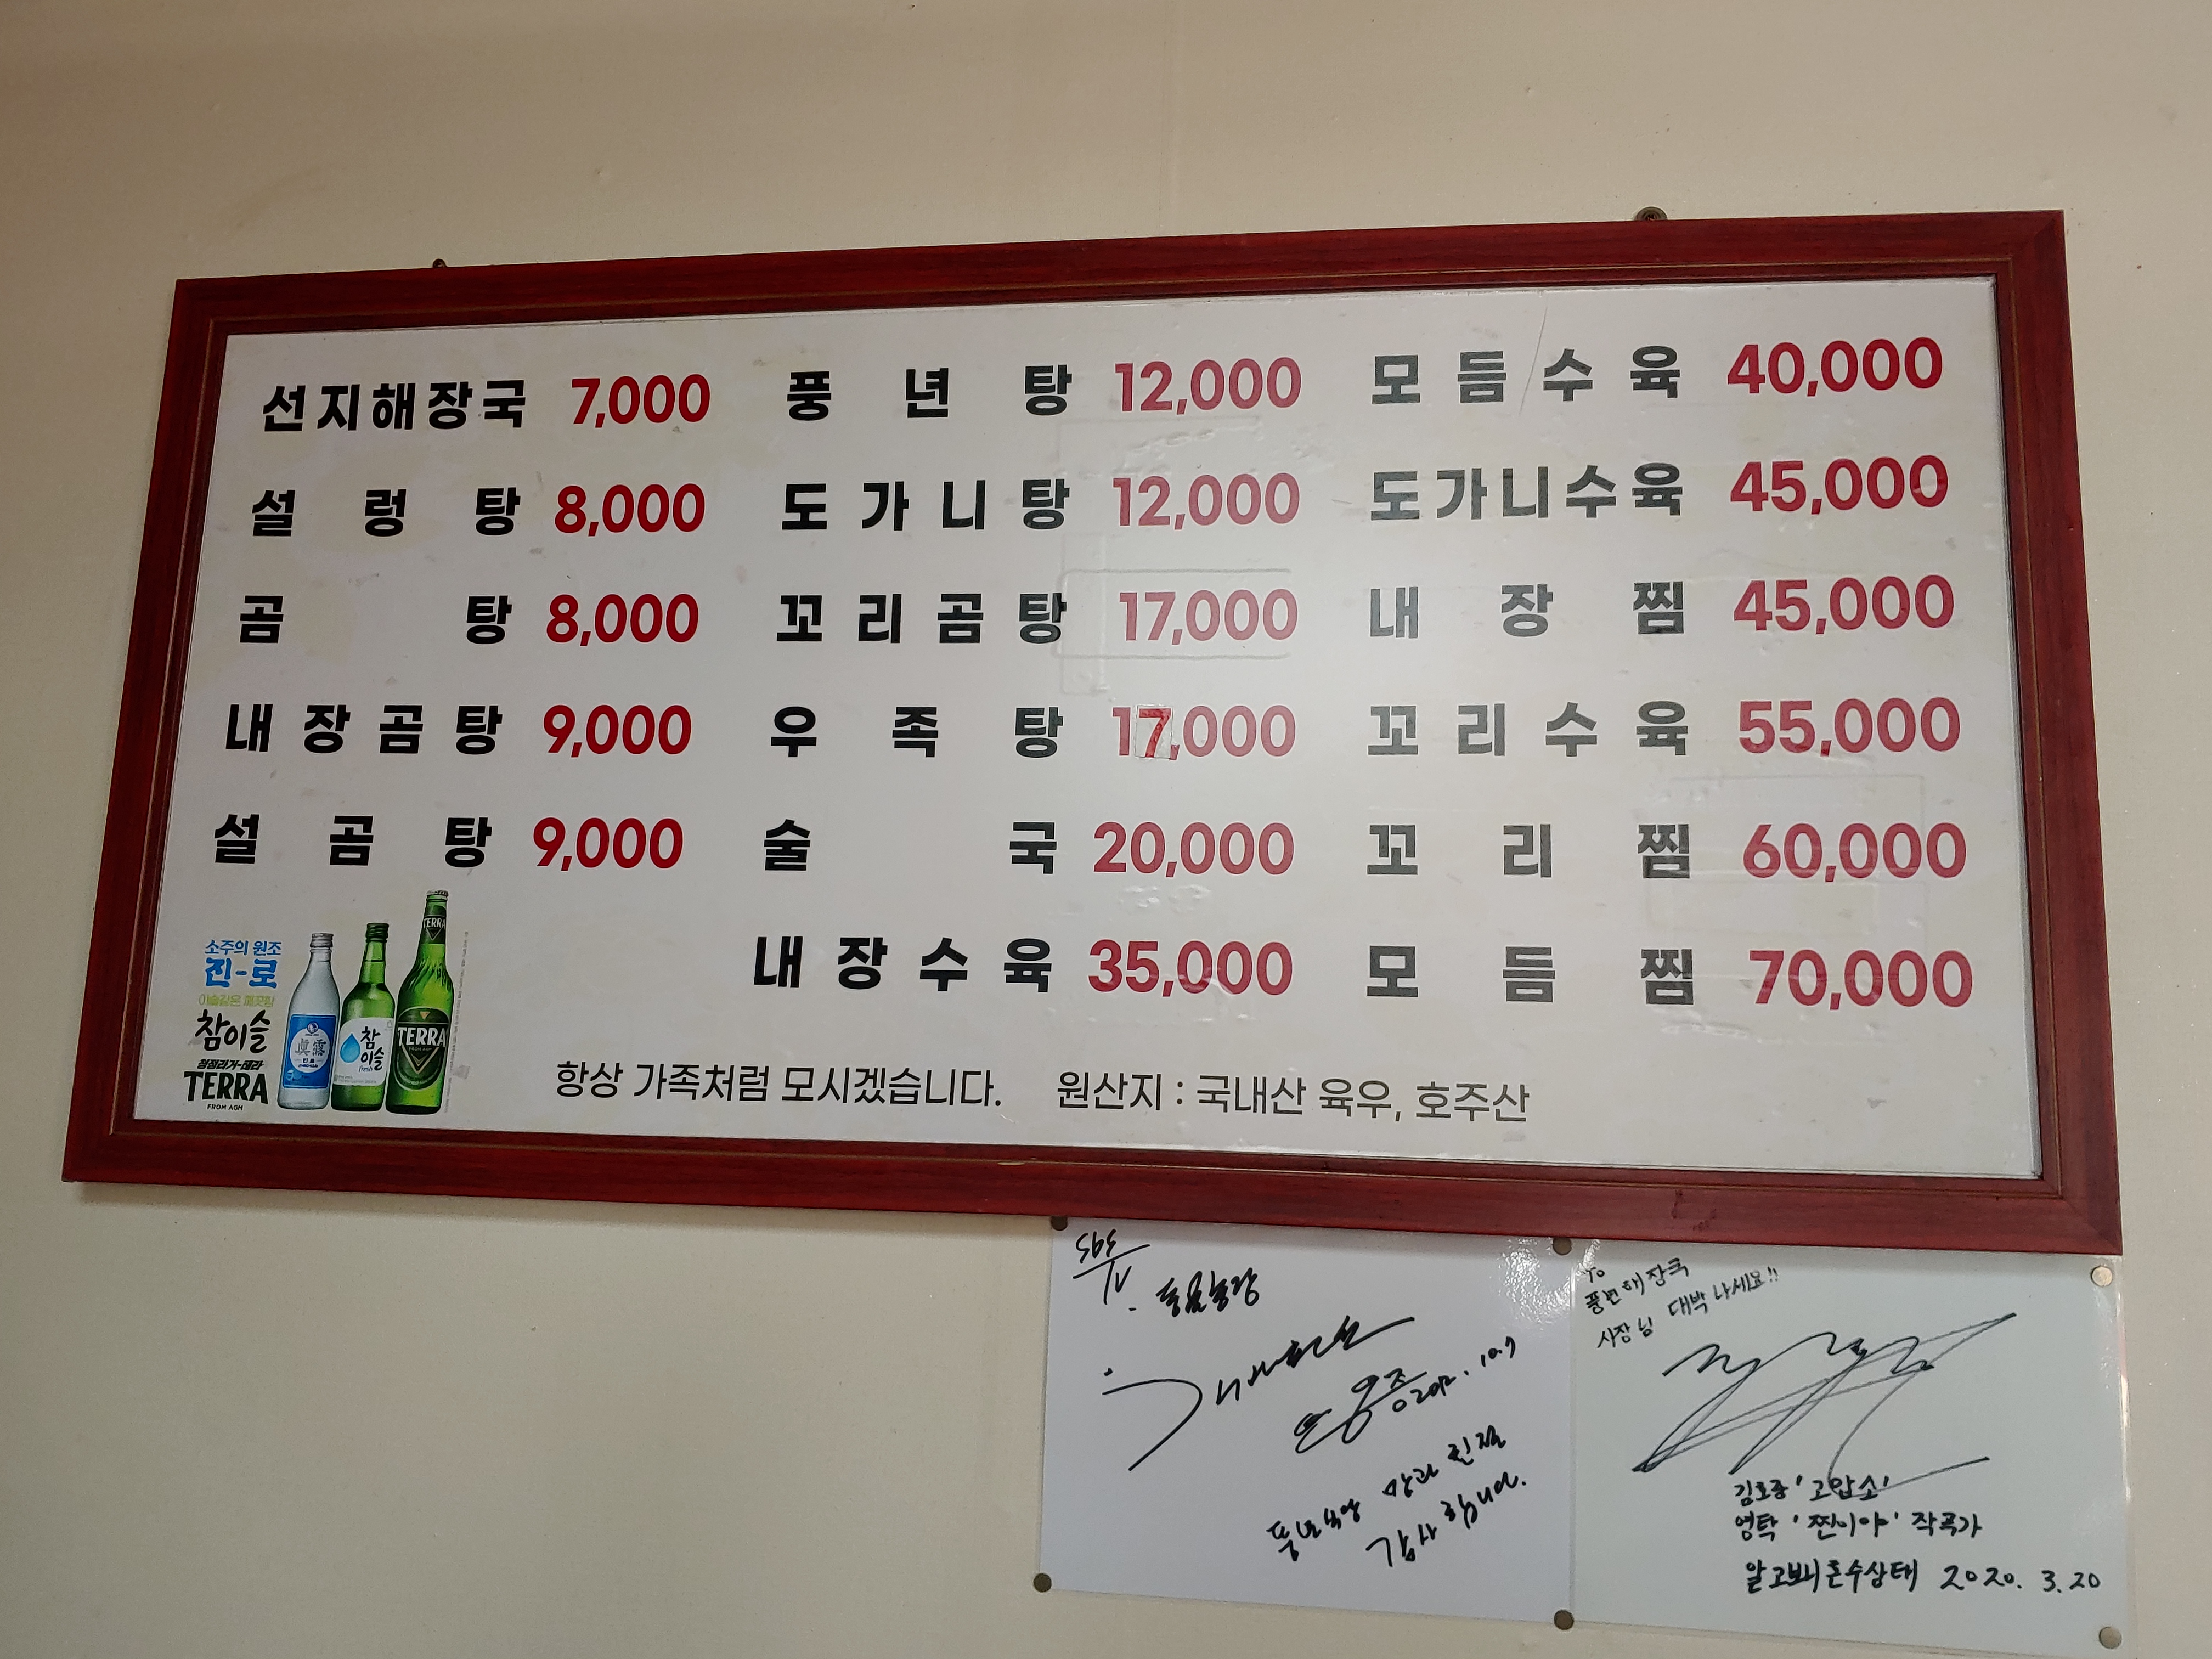 선지해장국 7,000
설렁탕 8,000
곰탕 8,000
내장곰탕 9,000
설곰탕 9,000
풍년탕 12,000
도가니탕 12,000
꼬리곰탕 17,000
우족탕 17,000
술국 20,000
내장수육 35,000
모듬수육 40,000
도가니수육 45,000
내장찜 45,000
꼬리수육 55,000
꼬리찜 60,000
모듬찜 70,000
소주의 원조
진-로
이슬같은 깨끗함
참이슬
청정라거-테라
TERRA
FROM AGM
眞露
참이슬
fresh
TERRA
TERRA
항상 가족처럼 모시겠습니다.
원산지 : 국내산 육우, 호주산
SBS
TV
10.7
감사합니다.
To
풍년해장국
사장님 대박나세요!!
김호중 '고맙소'
영탁 '찐이야' 작곡가
알고보니혼수상태 2020. 3. 20